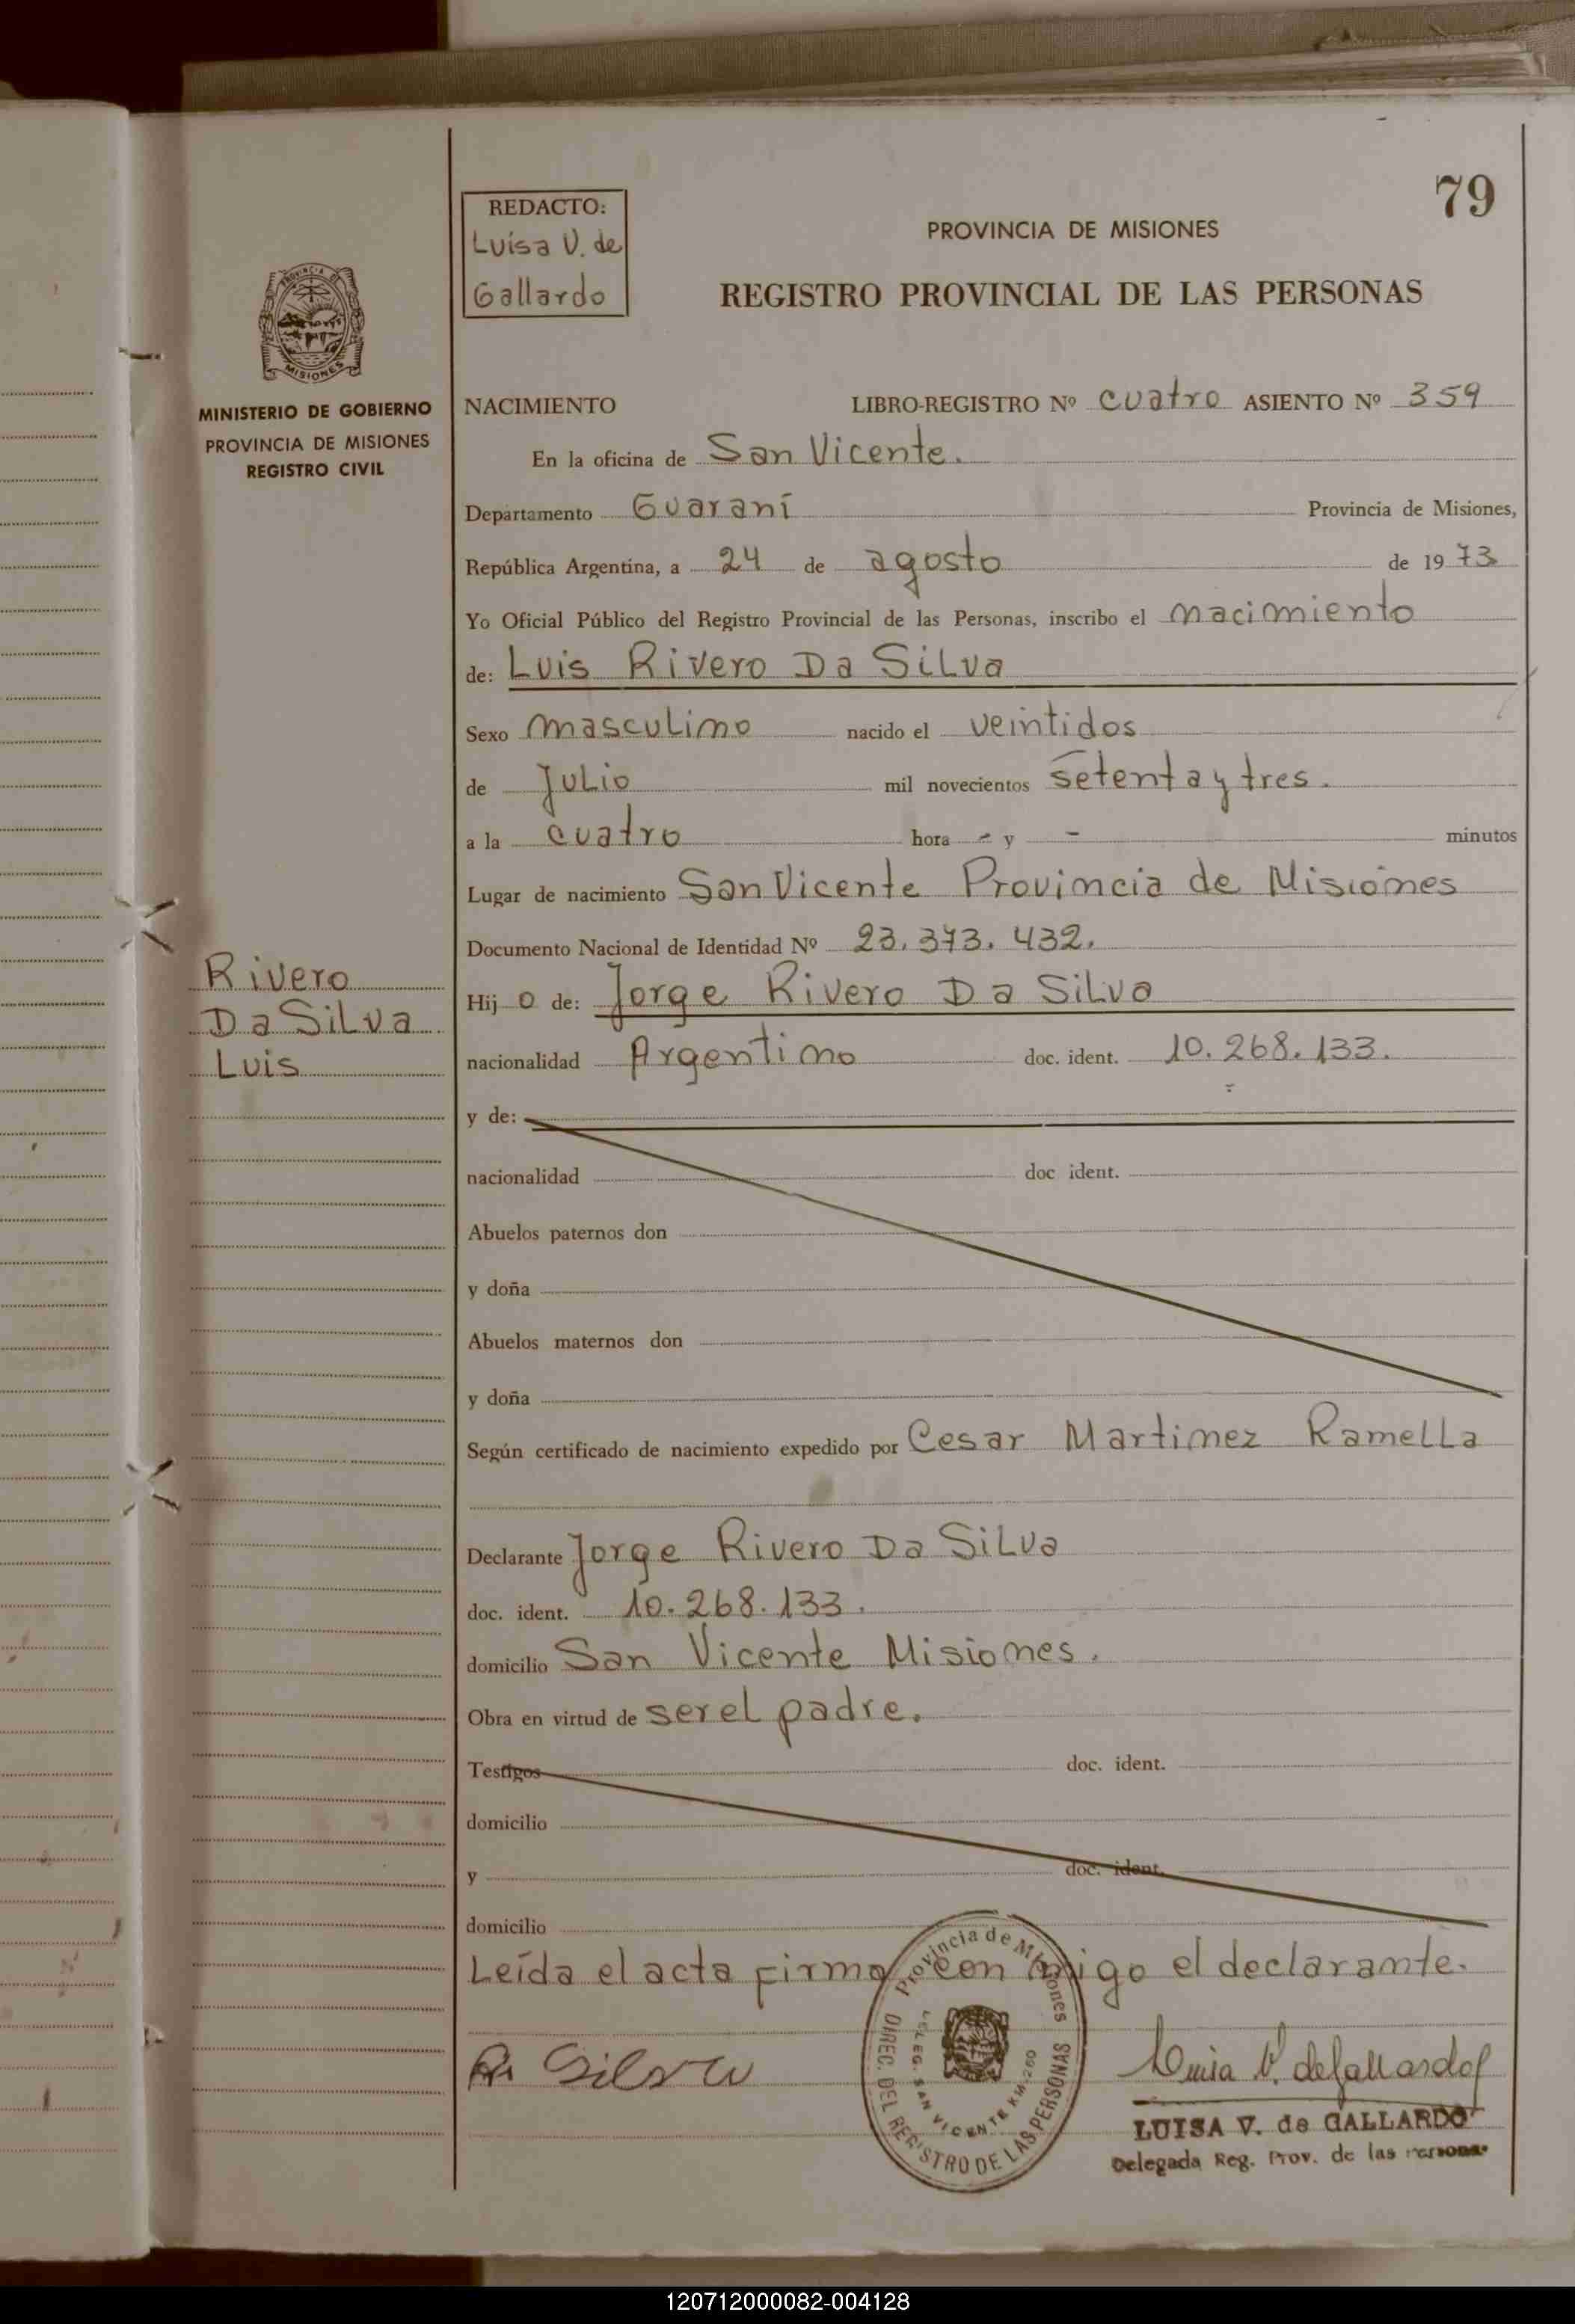 79
REDACTO:
Luisa V. de
Gallardo
PROVINCIA DE MISIONES
REGISTRO PROVINCIAL DE LAS PERSONAS
PROVINCIA DE
MISIONES
MINISTERIO DE GOBIERNO
PROVINCIA DE MISIONES
REGISTRO CIVIL
NACIMIENTO LIBRO-REGISTRO Nº cuatro ASIENTO Nº 359
En la oficina de San Vicente.
Departamento Guaraní Provincia de Misiones,
República Argentina, a 24 de agosto de 1973
Yo Oficial Público del Registro Provincial de las Personas, inscribo el nacimiento
de: Luis Rivero Da Silva
Sexo masculino nacido el veintidos
de Julio mil novecientos setenta y tres.
a la cuatro hora - y - minutos
Lugar de nacimiento San Vicente Provincia de Misiones
Documento Nacional de Identidad Nº 23.373.432.
Rivero
Da Silva
Luis
Hijo de: Jorge Rivero Da Silva
nacionalidad Argentino doc. ident. 10.268.133.
y de:
nacionalidad doc ident.
Abuelos paternos don
y doña
Abuelos maternos don
y doña
Según certificado de nacimiento expedido por Cesar Martinez Ramella
Declarante Jorge Rivero Da Silva
doc. ident. 10.268.133.
domicilio San Vicente Misiones.
Obra en virtud de ser el padre.
Testigos doc. ident.
domicilio
y doc. ident.
domicilio
Leída el acta firma con migo el declarante.
Provincia de Misiones
DIREC. DEL REGISTRO DE LAS PERSONAS
DELEG. SAN VICENTE KM-260
Silva
Luisa V. de Gallardo
LUISA V. de GALLARDO
Delegada Reg. Prov. de las Personas
120712000082-004128